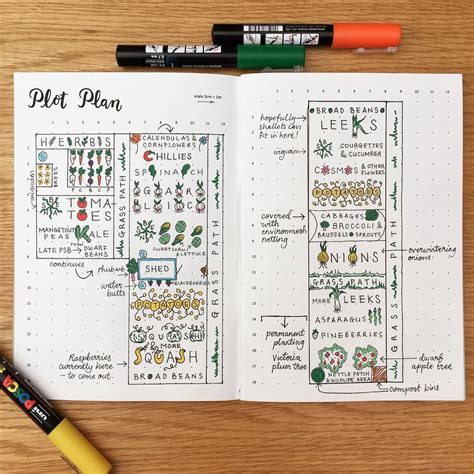 Plot Plan
scale 2cm = 1m
1 2 3 4 5 6 7 8 9 10 11 12
HERBS
TOMATOES
MANGETOUT
PEAS
KALE
Then
LATE PSB
DWARF
BEANS
GRASS PATH
continues
CALENDULAS &
CORNFLOWERS
CHILLIES
SPINACH
GARLIC
SWEETCORN
& LETTUCE
rhubarb
SHED
BLACKBERRIES
water
butts
POTATOES
SQUASH
& MORE
SQUASH
BROAD BEANS
Raspberries
currently here
to come out.
GRASS PATH
hopefully
shallots can
fit in here!
BROAD BEANS
LEEKS
wigwam
COURGETTES
& CUCUMBER
COSMOS & OTHER
FLOWERS
POTATOES
covered
with
environmesh
netting
CABBAGES
BROCCOLI &
BRUSSELS SPROUTS
ONIONS
overwintering
onions
GRASS PATH
MORE
LEEKS
ASPARAGUS
PINEBERRIES
permanent
planting
Victoria
plum tree
dwarf
apple tree
NETTLE PATCH
& WILDLIFE AREA
compost bins
GRASS PATH
POSCA